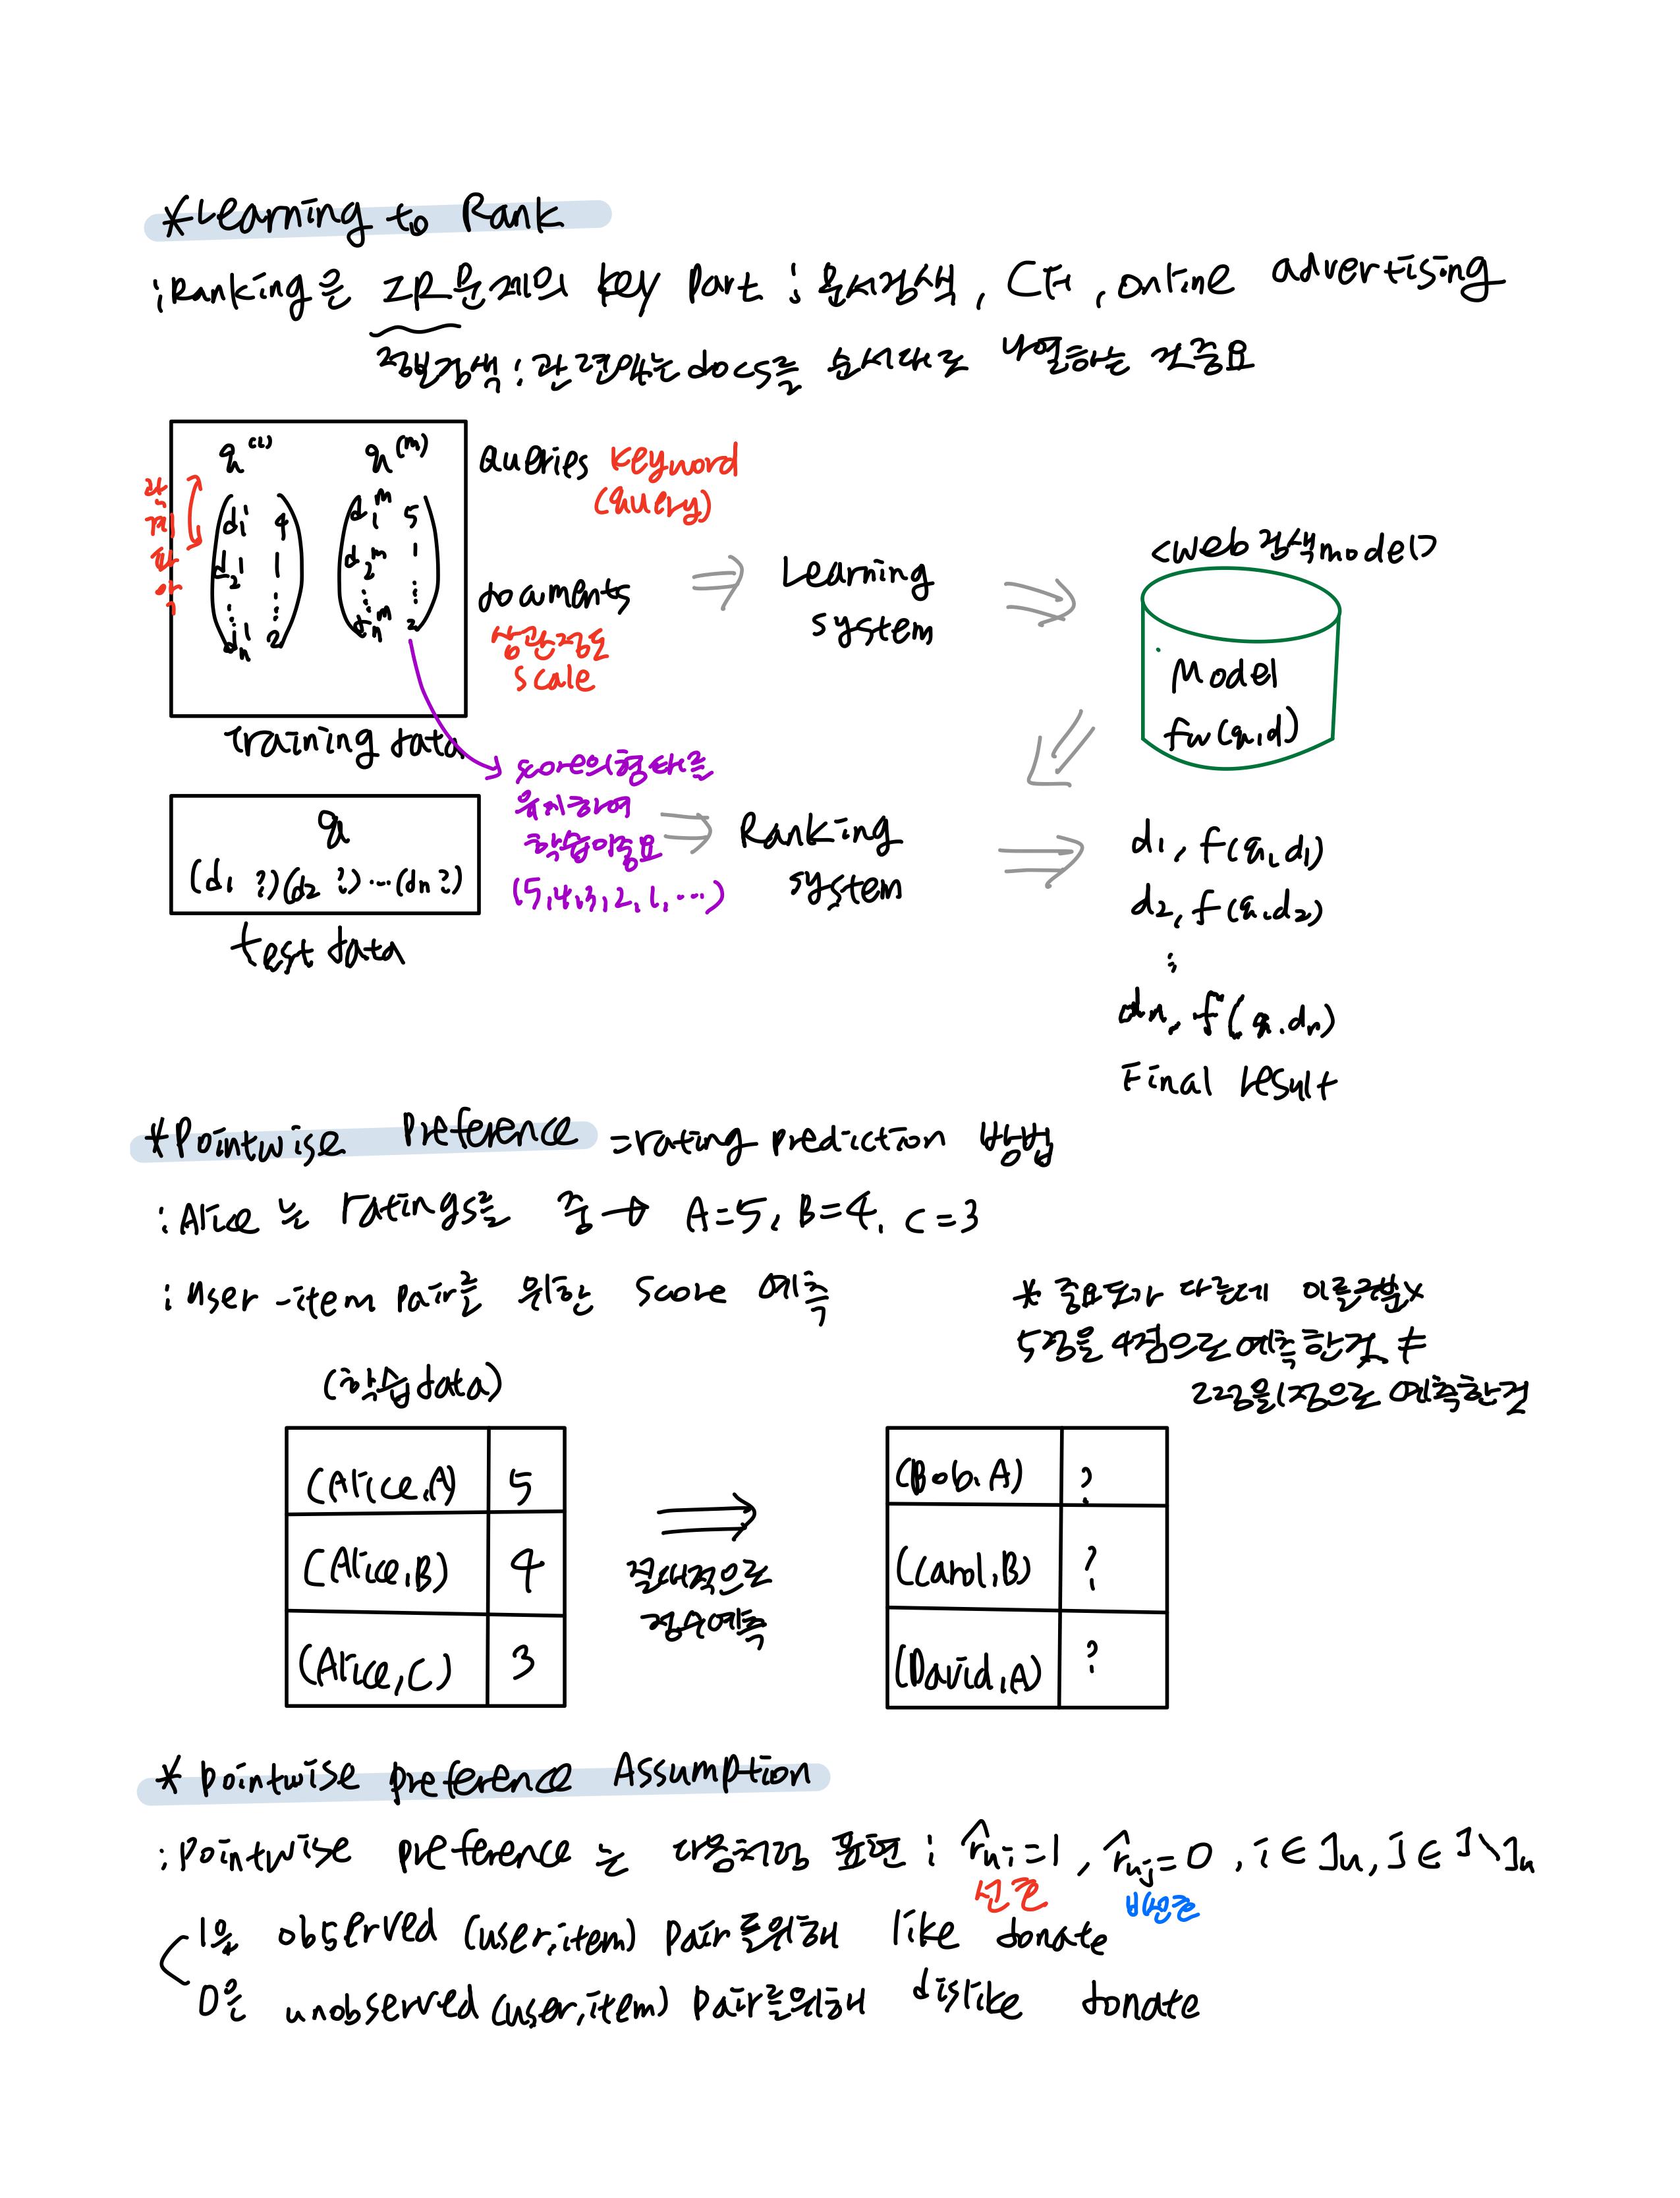 *Learning to Rank
; Ranking은 IR문제의 key part ; 문서검색, CF, online advertising
정보검색 ; 관련있는 docs를 순서대로 나열하는 것 중요
q(1) q(m)
queries keyword
(query)
관계파악
d1 1 4
d2 1 1
⋮ ⋮
dn 1 2
d1 m 5
d2 m 1
⋮ ⋮
dn m 2
documents
상관정도
scale
training data
⇒ Learning
system
⇒
<web 검색model>
Model
fw(q,d)
score의 형태를
유지하여
학습이 중요
(5,4,3,2,1,...)
q
(d1 ?)(d2 ?)...(dn ?)
test data
⇒ Ranking
system
⇒
d1, f(q,d1)
d2, f(q,d2)
⋮
dn, f(q,dn)
Final result
*Pointwise Preference = rating prediction 방법
: Alice 는 ratings를 줌 → A=5, B=4, C=3
; user-item pair를 위한 score 예측
* 중요도가 다른데 이를 구분x
5점을 4점으로 예측한것 ≠
2점을 1점으로 예측한것
(학습data)
(Alice,A) 5
(Alice,B) 4
(Alice,C) 3
⇒
절대적으로
점수예측
(Bob,A) ?
(Carol,B) ?
(David,A) ?
* pointwise preference Assumption
: Pointwise preference 는 다음처럼 표현 ; r̂ui=1, r̂uj=0, i∈Iu, j∈I\Iu
선호 비선호
1은 observed (user,item) pair를위해 like donate
0은 unobserved (user,item) pair를위해 dislike donate